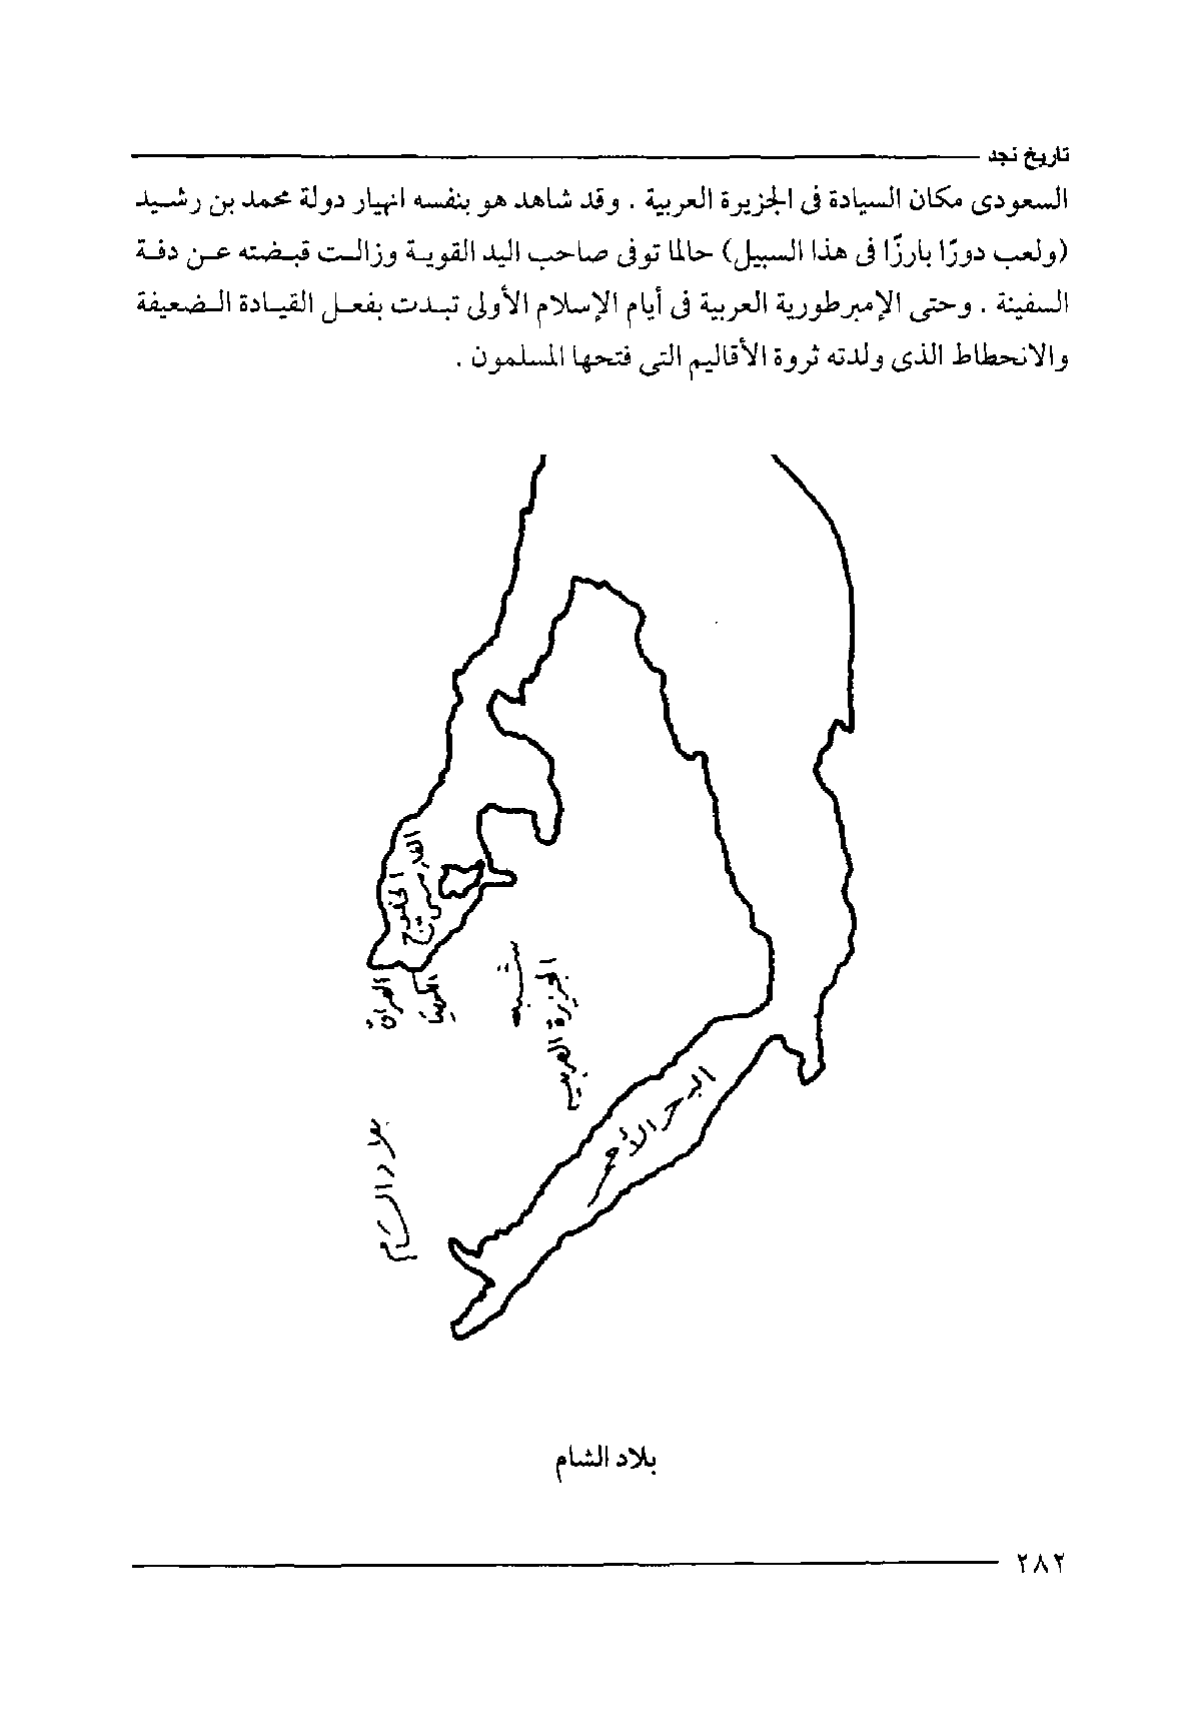 تاريخ نجد
السعودى مكان السيادة فى الجزيرة العربية . وقد شاهد هو بنفسه انهيار دولة محمد بن رشـيد
(ولعب دورًا بارزًا فى هذا السبيل) حالما توفى صاحب اليد القويـة وزالـت قبـضته عـن دفـة
السفينة . وحتى الإمبرطورية العربية فى أيام الإسلام الأولى تبـدت بفعـل القيـادة الـضعيفة
والانحطاط الذى ولدته ثروة الأقاليم التي فتحها المسلمون .
الخليج
العراق
شبه
الجزيرة العربية
البحر الأحمر
بلاد الشام
بلاد الشام
٢٨٢